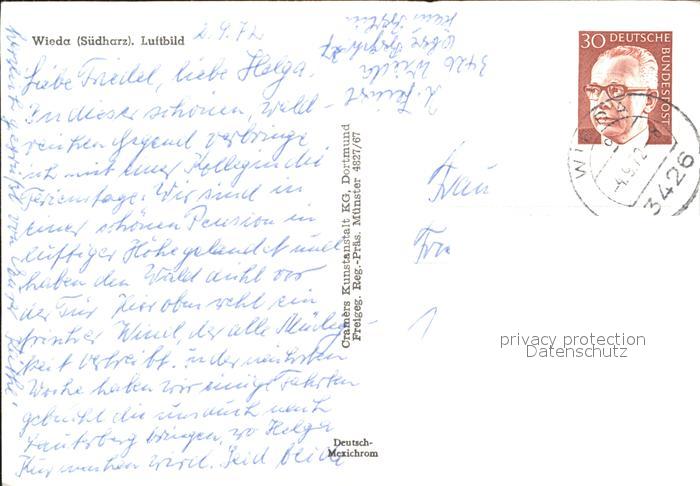 Wieda (Südharz). Luftbild
2.9.72
Liebe Friedel, liebe Helga.
In dieser schönen, wald-
reichen Gegend verbringe
ich mit einer Kollegin die
Ferientage. Wir sind in
einer schönen Pension in
luftiger Höhe gelandet und
haben den Wald dicht vor
der Tür. Hier oben weht ein
frischer Wind, der alle Müdig-
keit vertreibt. In der nächsten
Woche haben wir einige Fahrten
gebucht die uns auch nach
Lauterberg bringen, wo Helga
Kur machen wird. Seid beide
herzlich gegrüßt von
3426 Wieda
Cramers Kunstanstalt KG. Dortmund
Freigeg. Reg.-Präs. Münster 4827/67
Deutsch-
Mexichrom
30 DEUTSCHE
BUNDESPOST
-4.9.72
3426
Frau
privacy protection
Datenschutz